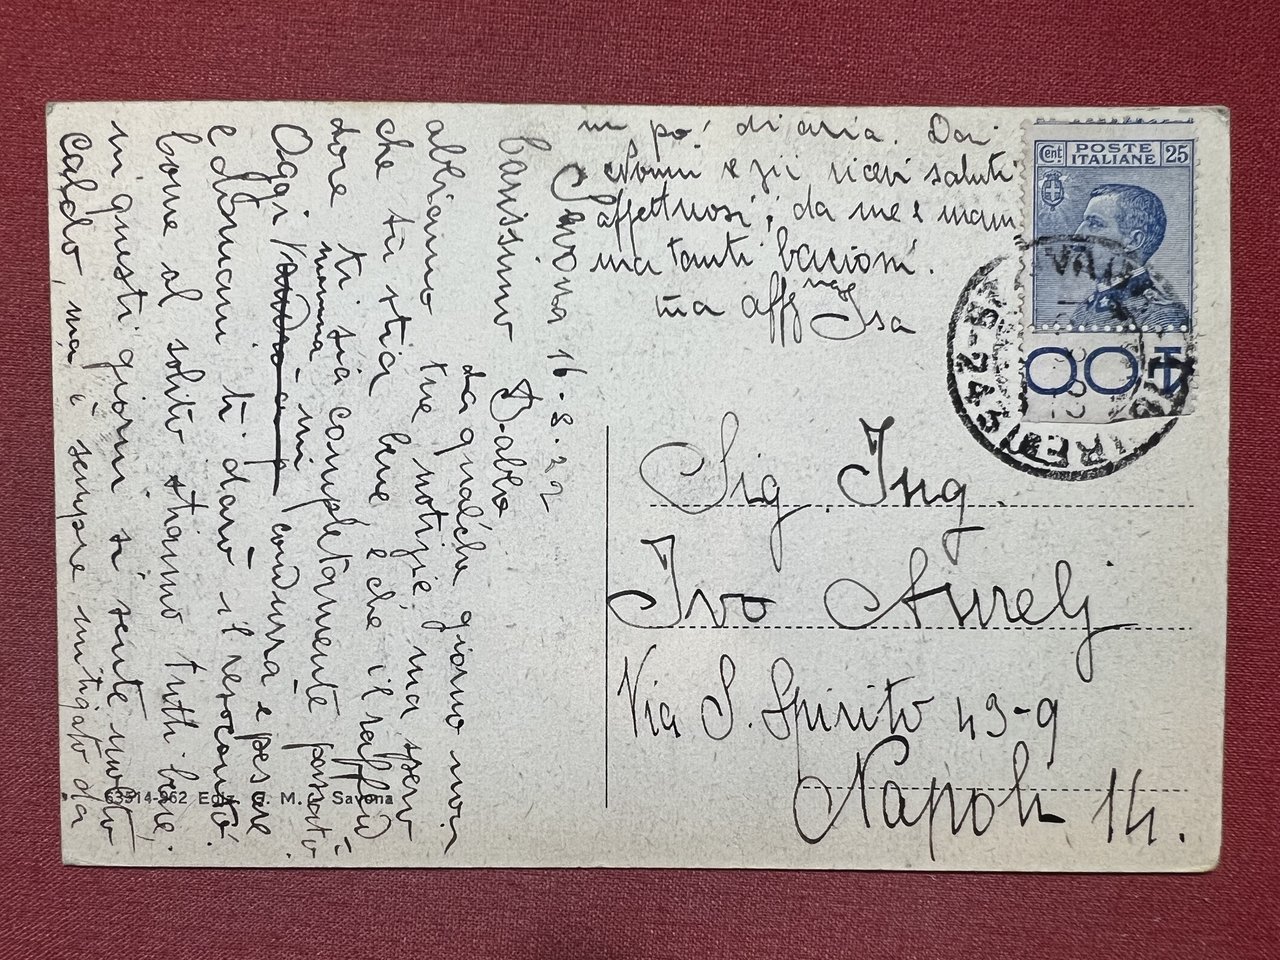 Savona 16-8-22
Carissimo Babbo
da qualche giorno non
abbiamo tue notizie, ma spero
che tu stia bene e che il raffred
dore ti sia completamente passato
Oggi mamma mi condurrà a pesare
e domani ti darò il resoconto.
bene al solito stiamo tutti bene;
in questi giorni si sente molto
caldo, ma è sempre mitigato da
un po' di aria. Dai
Nonni e zii ricevi saluti
affettuosi; da me e mam
ma tanti bacioni.
tua affma Isa
Cent POSTE ITALIANE 25
Sig. Ing.
Ivo Aurelj
Via S. Spirito 43-9
Napoli 14.
63514-962 Ediz. G. M. Savona